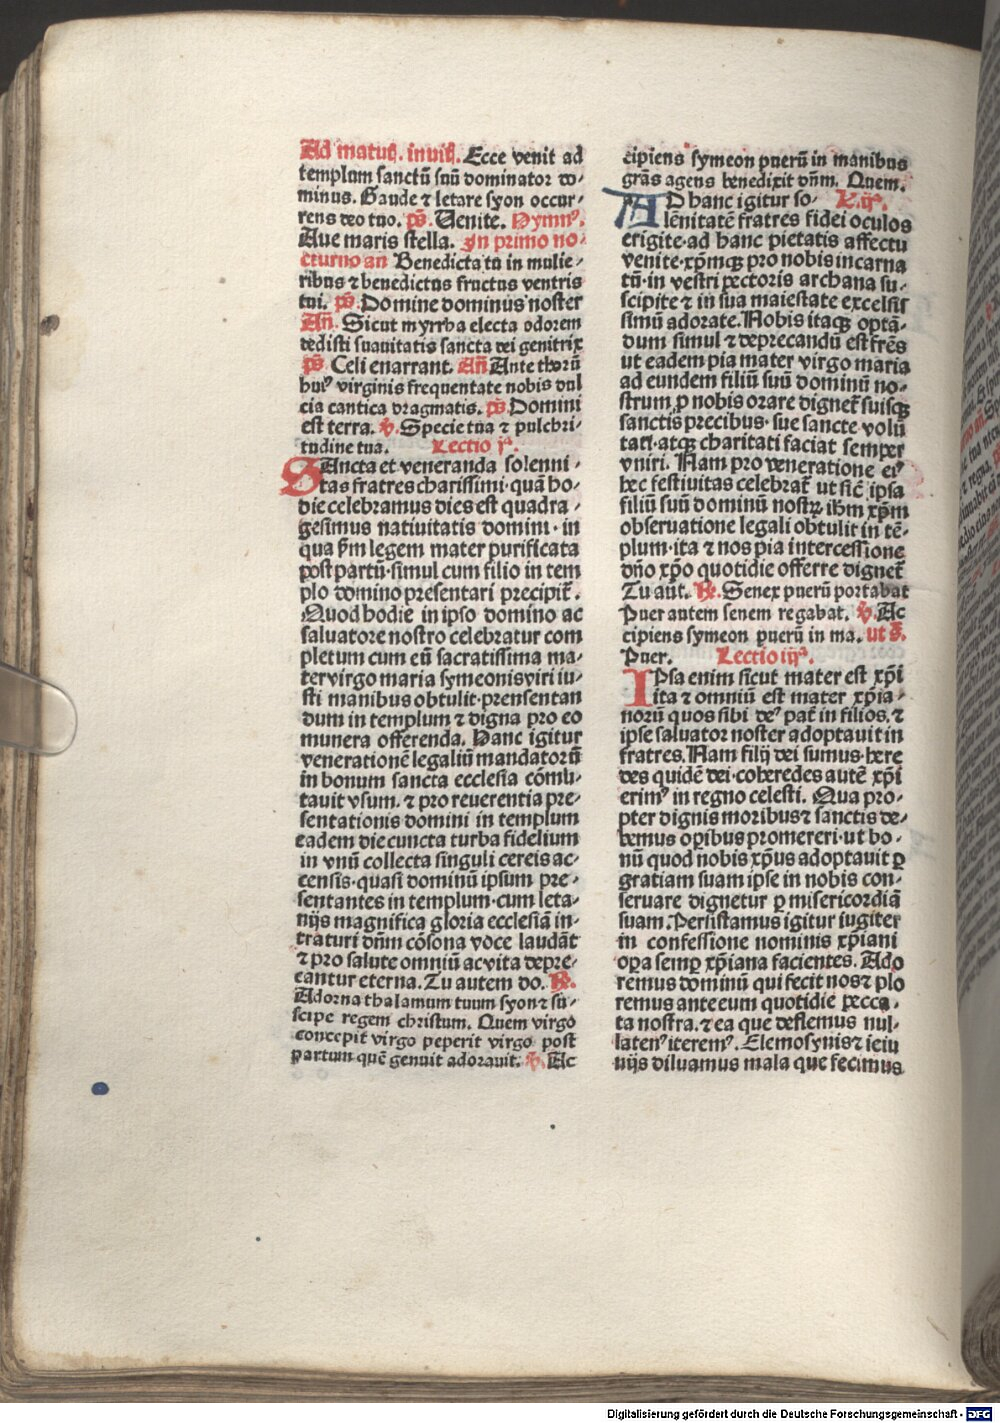 Ad matutꝭ. inuitꝭ. Ecce venit ad
templum sanctū suū dominator do-
minus. Gaude ⁊ letare syon occur-
rens deo tuo. p̄s. Uenite. Hymnꝰ.
Aue maris stella. In primo no-
cturno an̄ Benedicta tu in mulie-
ribus ⁊ benedictus fructus ventris
tui. p̄s. Domine dominus noster
An̄. Sicut myrrha electa odorem
dedisti suauitatis sancta dei genitrix
p̄s. Celi enarrant. An̄ Ante thorū
huiꝰ virginis frequentate nobis dul
cia cantica dragmatis. p̄s. Domini
est terra. ℣. Specie tua ⁊ pulchri-
tudine tua. Lectio jᵃ.
SAncta et veneranda solenni-
tas fratres charissimi· quā ho-
die celebramus dies est quadra-
gesimus natiuitatis domini· in
qua ẜm legem mater purificata
post partū· simul cum filio in tem
plo domino presentari precipit̄.
Quod hodie in ipso domino ac
saluatore nostro celebratur com
pletum cum eū sacratissima ma-
ter virgo maria symeonis viri iu-
sti manibus obtulit· prensentan
dum in templum ⁊ digna pro eo
munera offerenda. Hanc igitur
venerationē legaliū mandatorū
in bonum sancta ecclesia cōmu-
tauit vsum. ⁊ pro reuerentia pre-
sentationis domini in templum
eadem die cuncta turba fidelium
in vnū collecta singuli cereis ac-
censis· quasi dominū ipsum pre-
sentantes in templum· cum leta-
nijs magnifica gloria ecclesiā in-
traturi dn̄m cōsona voce laudāt
⁊ pro salute omniū ac vita depre-
cantur eterna. Tu autem do. ℟.
Adorna thalamum tuum syon ⁊ su-
scipe regem christum. Quem virgo
concepit virgo peperit virgo post
partum quē genuit adorauit. ℣. Ac
cipiens symeon puerū in manibus
grās agens benedixit dn̄m. Quem.
AD hanc igitur so- L. ijᵃ.
lēnitatē fratres fidei oculos
erigite· ad hanc pietatis affectu
venite· xp̄mqꝫ pro nobis incarna
tū· in vestri pectoris archana su-
scipite ⁊ in sua maiestate excelsis
simū adorate. Nobis itaqꝫ optā-
dum simul ⁊ deprecandū est frēs
ut eadem pia mater virgo maria
ad eundem filiū suū dominū no-
strum ꝓ nobis orare dignet̄ suisqꝫ
sanctis precibus· sue sancte volū
tati· atqꝫ charitati faciat semper
vniri. Nam pro veneratione eiꝰ
hec festiuitas celebrat̄ ut sic̄ ipsa
filiū suū dominū nostꝝ ihm xp̄m
obseruatione legali obtulit in tē-
plum· ita ⁊ nos pia intercessione
dn̄o xp̄o quotidie offerre dignet̄
Tu aut. ℟. Senex puerū portabat
Puer autem senem regabat. ℣. Ac
cipiens symeon puerū in ma. ut s̄.
Puer. Lectio iijᵃ.
IPsa enim sicut mater est xp̄i
ita ⁊ omniū est mater xp̄ia-
norū quos sibi deꝰ pat̄ in filios. ⁊
ipse saluator noster adoptauit in
fratres. Nam filij dei sumus· here
des quidē dei· coheredes autē xp̄i
erimꝰ in regno celesti. Qua pro-
pter dignis moribus ⁊ sanctis de-
bemus operibus promereri· ut bo-
nū quod nobis xp̄us adoptauit ꝑ
gratiam suam ipse in nobis con-
seruare dignetur ꝑ misericordiā
suam. Persistamus igitur iugiter
in confessione nominis xp̄iani
opera semꝑ xp̄iana facientes. Ado
remus dominū qui fecit nos ⁊ plo
remus ante eum quotidie pecca-
ta nostra. ⁊ ea que deflemus nul-
latenꝰ iteremꝰ. Elemosynis ⁊ ieiu
niis diluamus mala que fecimus
Digitalisierung gefördert durch die Deutsche Forschungsgemeinschaft - DFG